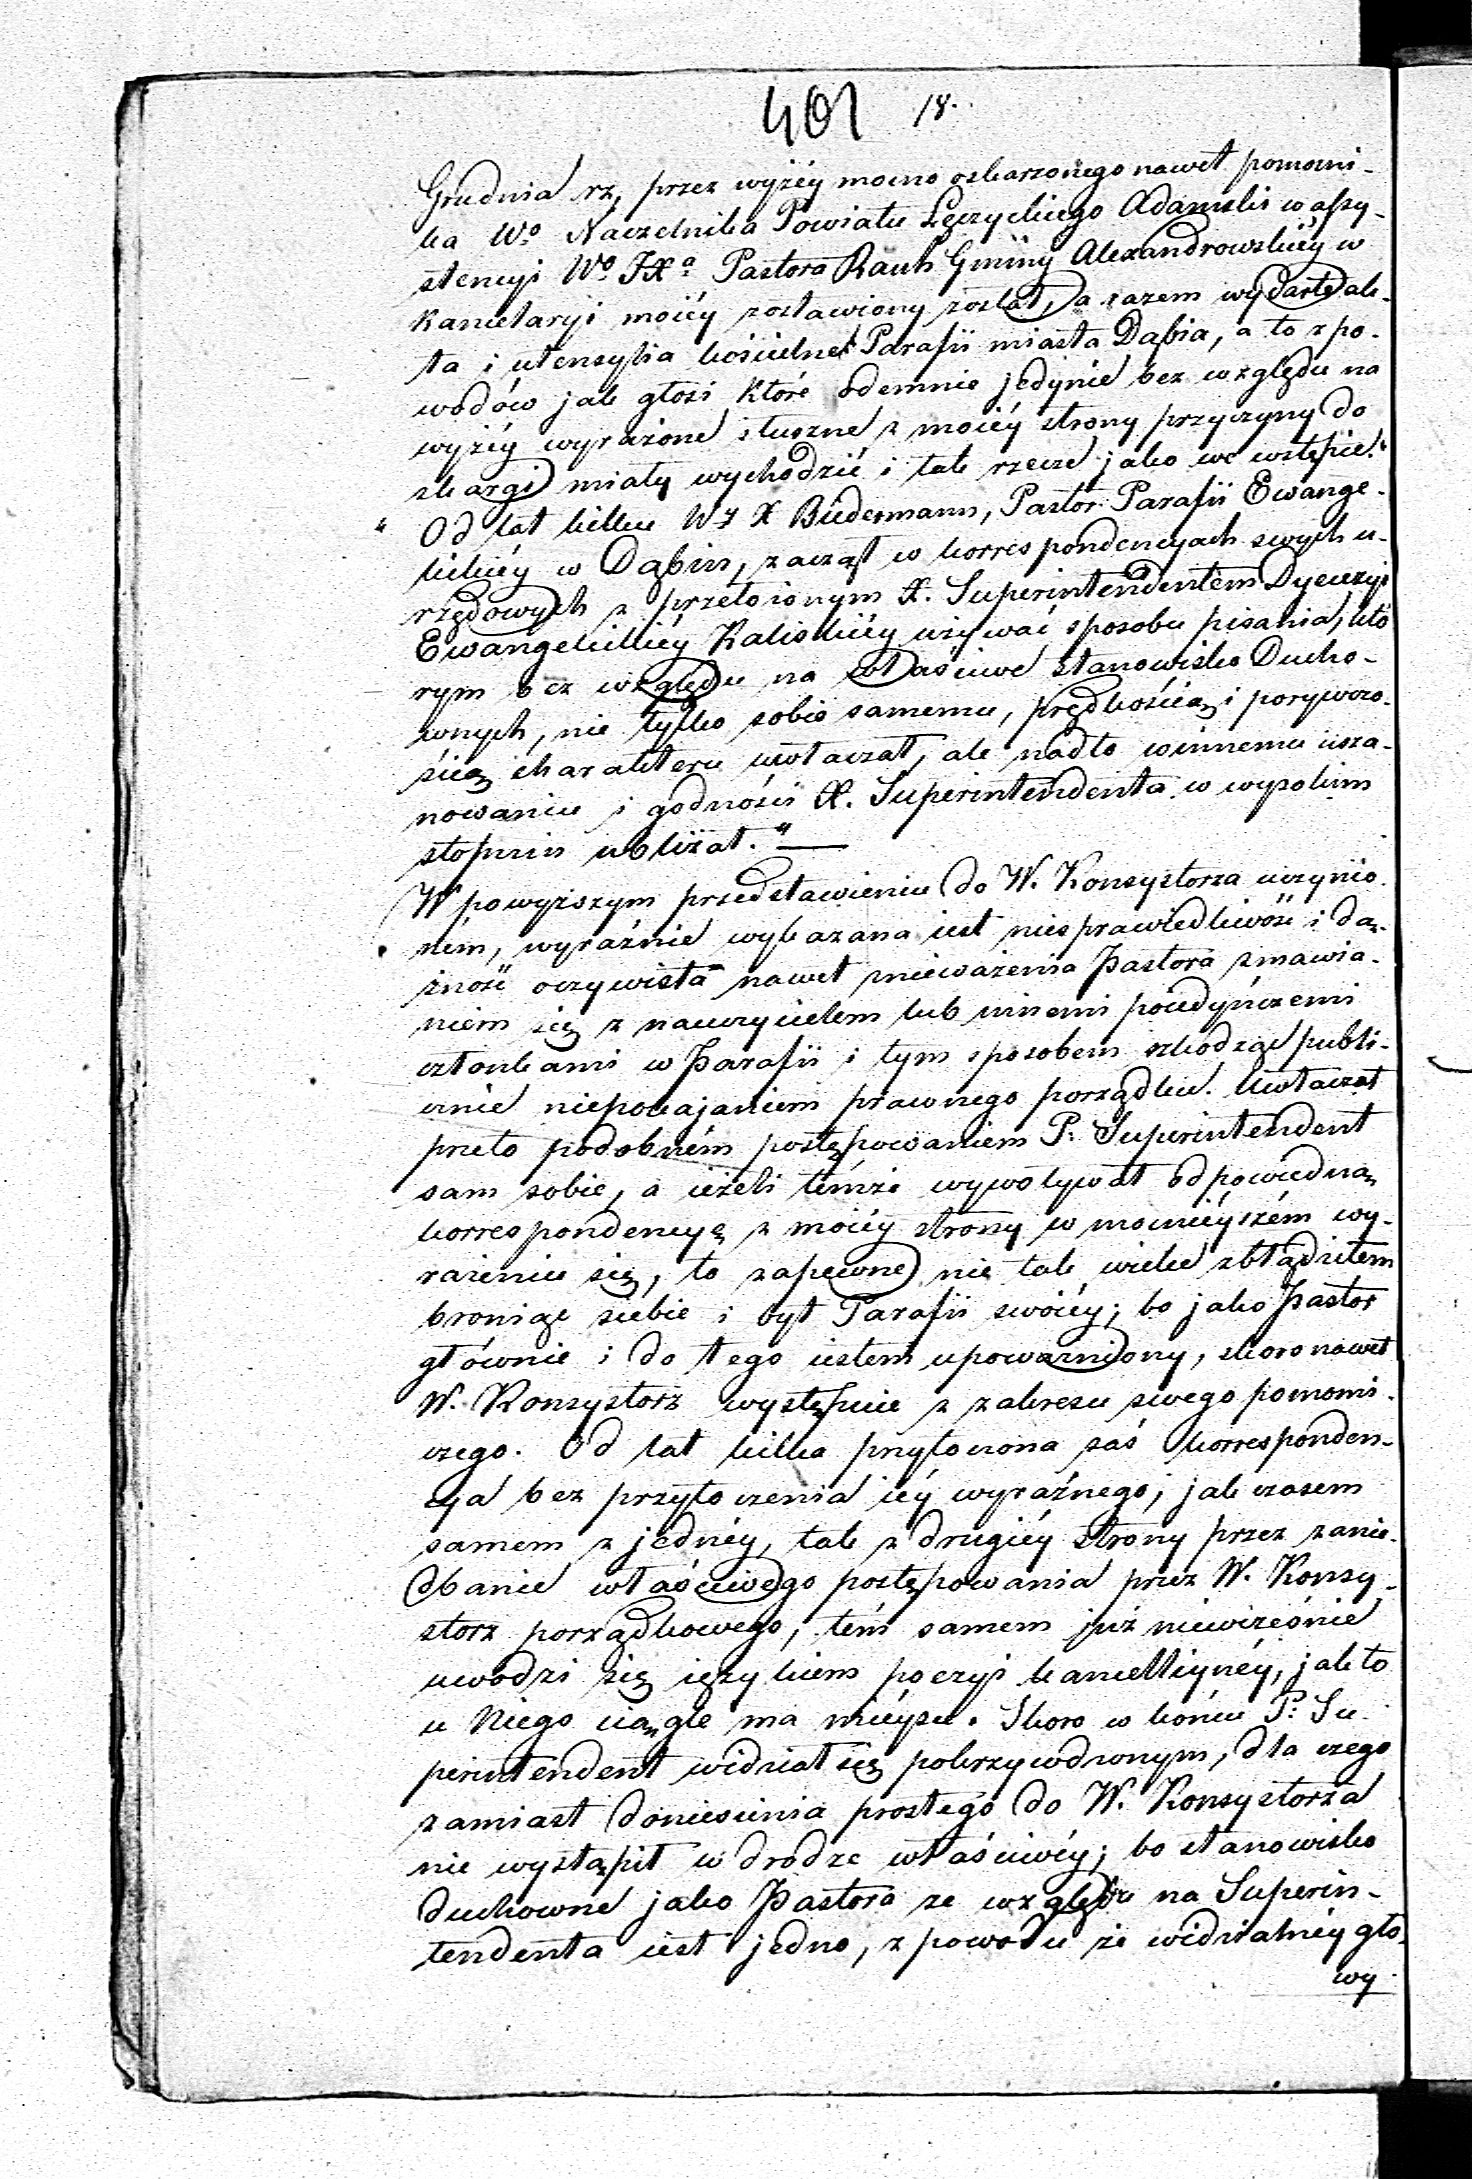 401 18.
Grudnia rz, przez wyżéy mocno oskarżonego nawet pomocni-
ka Wo Naczelnika Powiatu Łęczyckiego Adamski w assy-
stencyi Wo JXa Pastora Rauh Gminy Alexandrowskiéy w
Kancelaryi moiéy zostawiony został, a razem wydarte ak-
ta i utensylia kościelne Parafii miasta Dąbia, a to z po-
wodów jak głosi które odemnie jedynie bez względu na
wyżéy wyrażone słuszne z moiéy strony przyczyny do
skargi miały wychodzić i tak rzecze jako we wstępie:"
" Od lat kilku WJ X Büdermann, Pastor Parafii Ewange-
lickiéy w Dąbiu, zaczął w korrespondencyach swych u-
rzędowych z przełożonym X. Superintendentem Dyecezyi
Ewangelickiéy Kaliskiéy używać sposobu pisania, któ
rym bez względu na właściwe stanowisko Ducho-
wnych, nie tylko sobie samemu, prędkością i porywczo-
ścią charakteru uwłaczał, ale nadto winnemu usza-
nowaniu i godności X. Superintendenta w wysokim
stopniu ubliżał."
W powyższym przedstawieniu do W. Konsystorza uczynio-
ném, wyraźnie wykazana iest niesprawiedliwość i dą-
żność oczywista nawet znieważenia Pastora zmawia-
niem się z nauczycielem lub innemi poiedyńczemi
członkami w Parafii i tym sposobem szkodząc publi-
cznie niepowajaniem prawnego porządku. Uwłaczał
przeto podobném postępowaniem P: Superintendent
sam sobie, a ieżeli témże wywoływał odpowiednią
korrespondencyę z moiéy strony w mocniéyszém wy-
rażeniu się, to zapewne nie tak wiele zbłądziłem
broniąc siebie i byt Parafii swoiéy; bo jako Pastor
głównie i do tego iestem upoważniony, skoro nawet
W. Konsystorz występuie z zakresu swego pomocni-
czego. Od lat kilka przytoczona zaś korresponden-
cya bez przytoczenia iéy wyraźnego, jak czasem
samem z jednéy, tak z drugiéy strony przez zanie-
dbanie właściwego postępowania przez W. Konsy-
storz porządkowego, tém samem już niewcześnie
uwodzi się ięzykiem poezyi kancelliynéy, jak to
u Niego ciągle ma mieysce. Skoro w końcu P: Su-
perintendent widział się pokrzywdzonym, dla czego
zamiast doniesienia prostego do W. Konsystorza
nie wystąpił w drodze właściwéy; bo stanowisko
duchowne jako Pastora ze względu na Superin-
tendenta iest jedno, z powodu że widzialnéy gło-
wy